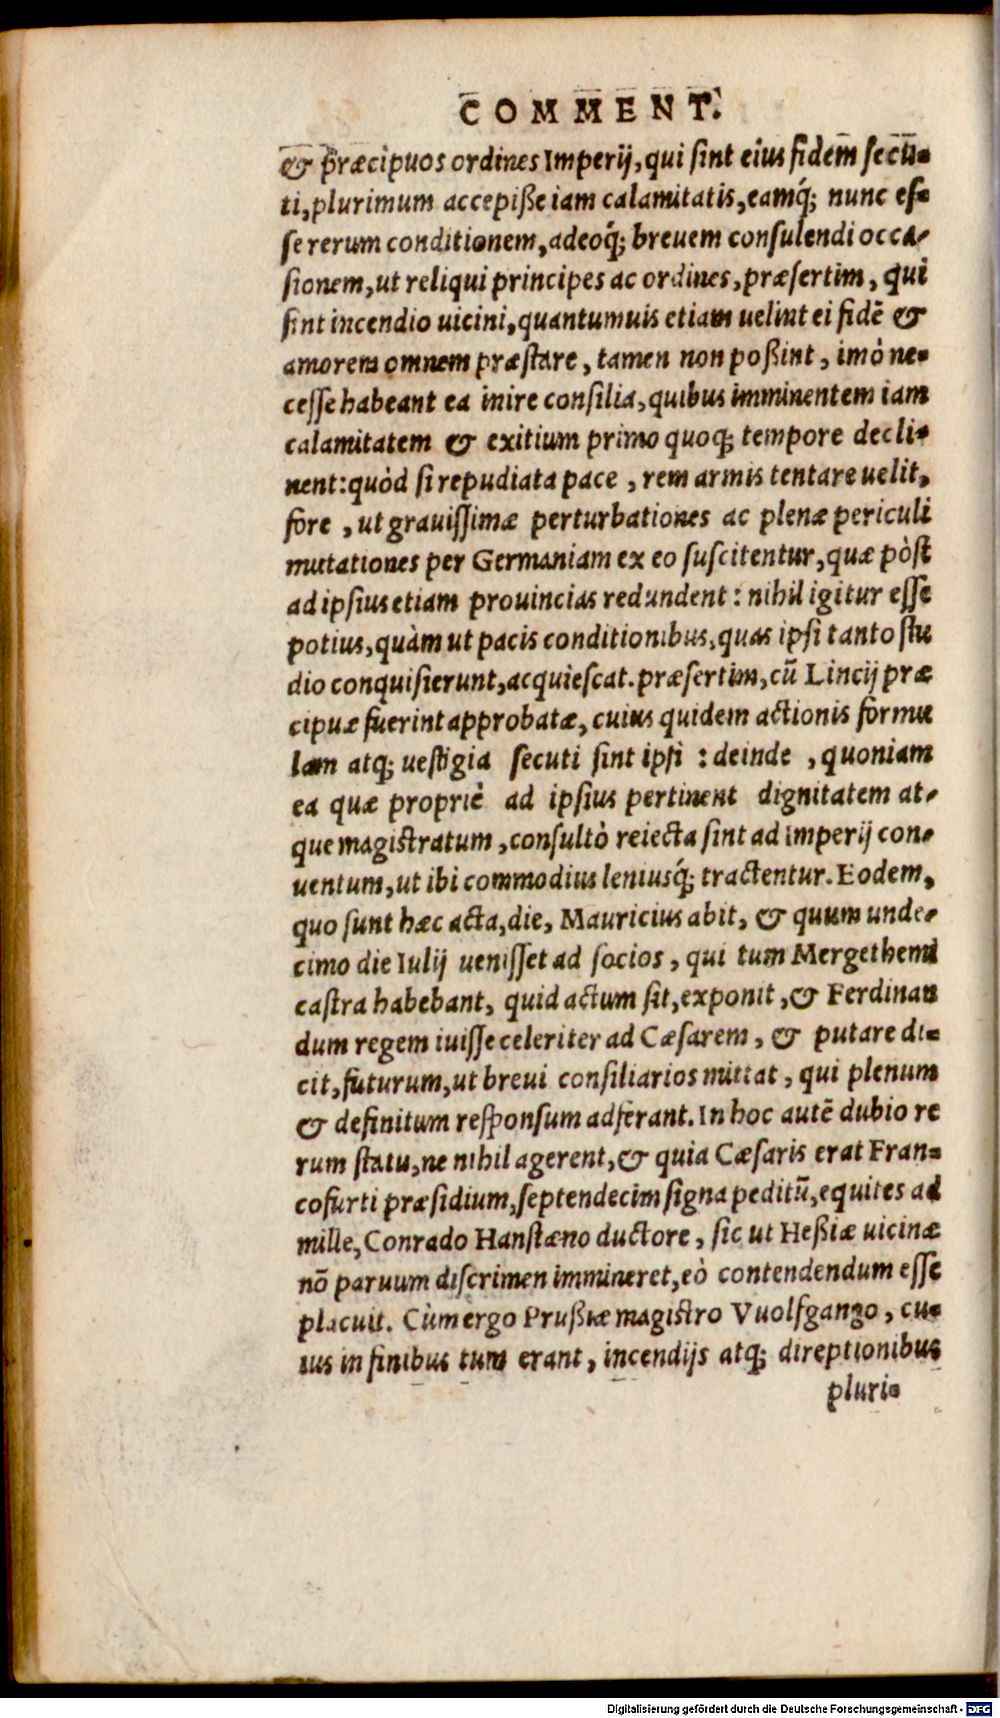 COMMENT.
& præcipuos ordines Imperij, qui sint eius fidem secu-
ti, plurimum accepiße iam calamitatis, eamq́; nunc es-
se rerum conditionem, adeoq́; breuem consulendi occa-
sionem, ut reliqui principes ac ordines, præsertim, qui
sint incendio uicini, quantumuis etiam uelint ei fidē &
amorem omnem præstare, tamen non poßint, imò ne-
cesse habeant ea inire consilia, quibus imminentem iam
calamitatem & exitium primo quoq; tempore decli-
nent: quòd si repudiata pace, rem armis tentare uelit,
fore, ut grauissimæ perturbationes ac plenæ periculi
mutationes per Germaniam ex eo suscitentur, quæ pòst
ad ipsius etiam prouincias redundent: nihil igitur esse
potius, quàm ut pacis conditionibus, quas ipsi tanto stu
dio conquisierunt, acquiescat. præsertim, cū Lincij præ
cipuæ fuerint approbatæ, cuius quidem actionis formu
lam atq; uestigia secuti sint ipsi: deinde, quoniam
ea quæ propriè ad ipsius pertinent dignitatem at-
que magistratum, consultò reiecta sint ad Imperij con-
uentum, ut ibi commodius leniusq́; tractentur. Eodem,
quo sunt hæc acta, die, Mauricius abit, & quum unde-
cimo die Iulij uenisset ad socios, qui tum Mergethemi
castra habebant, quid actum sit, exponit, & Ferdinan
dum regem iuisse celeriter ad Cæsarem, & putare di-
cit, futurum, ut breui consiliarios mittat, qui plenum
& definitum responsum adferant. In hoc autē dubio re
rum statu, ne nihil agerent, & quia Cæsaris erat Fran-
cofurti præsidium, septendecim signa peditū, equites ad
mille, Conrado Hanstæno ductore, sic ut Heßiæ uicinæ
nō paruum discrimen immineret, eò contendendum esse
placuit. Cùm ergo Prußiæ magistro Vuolfgango, cu-
ius in finibus tum erant, incendijs atq; direptionibus
pluri-
Digitalisierung gefördert durch die Deutsche Forschungsgemeinschaft - DFG